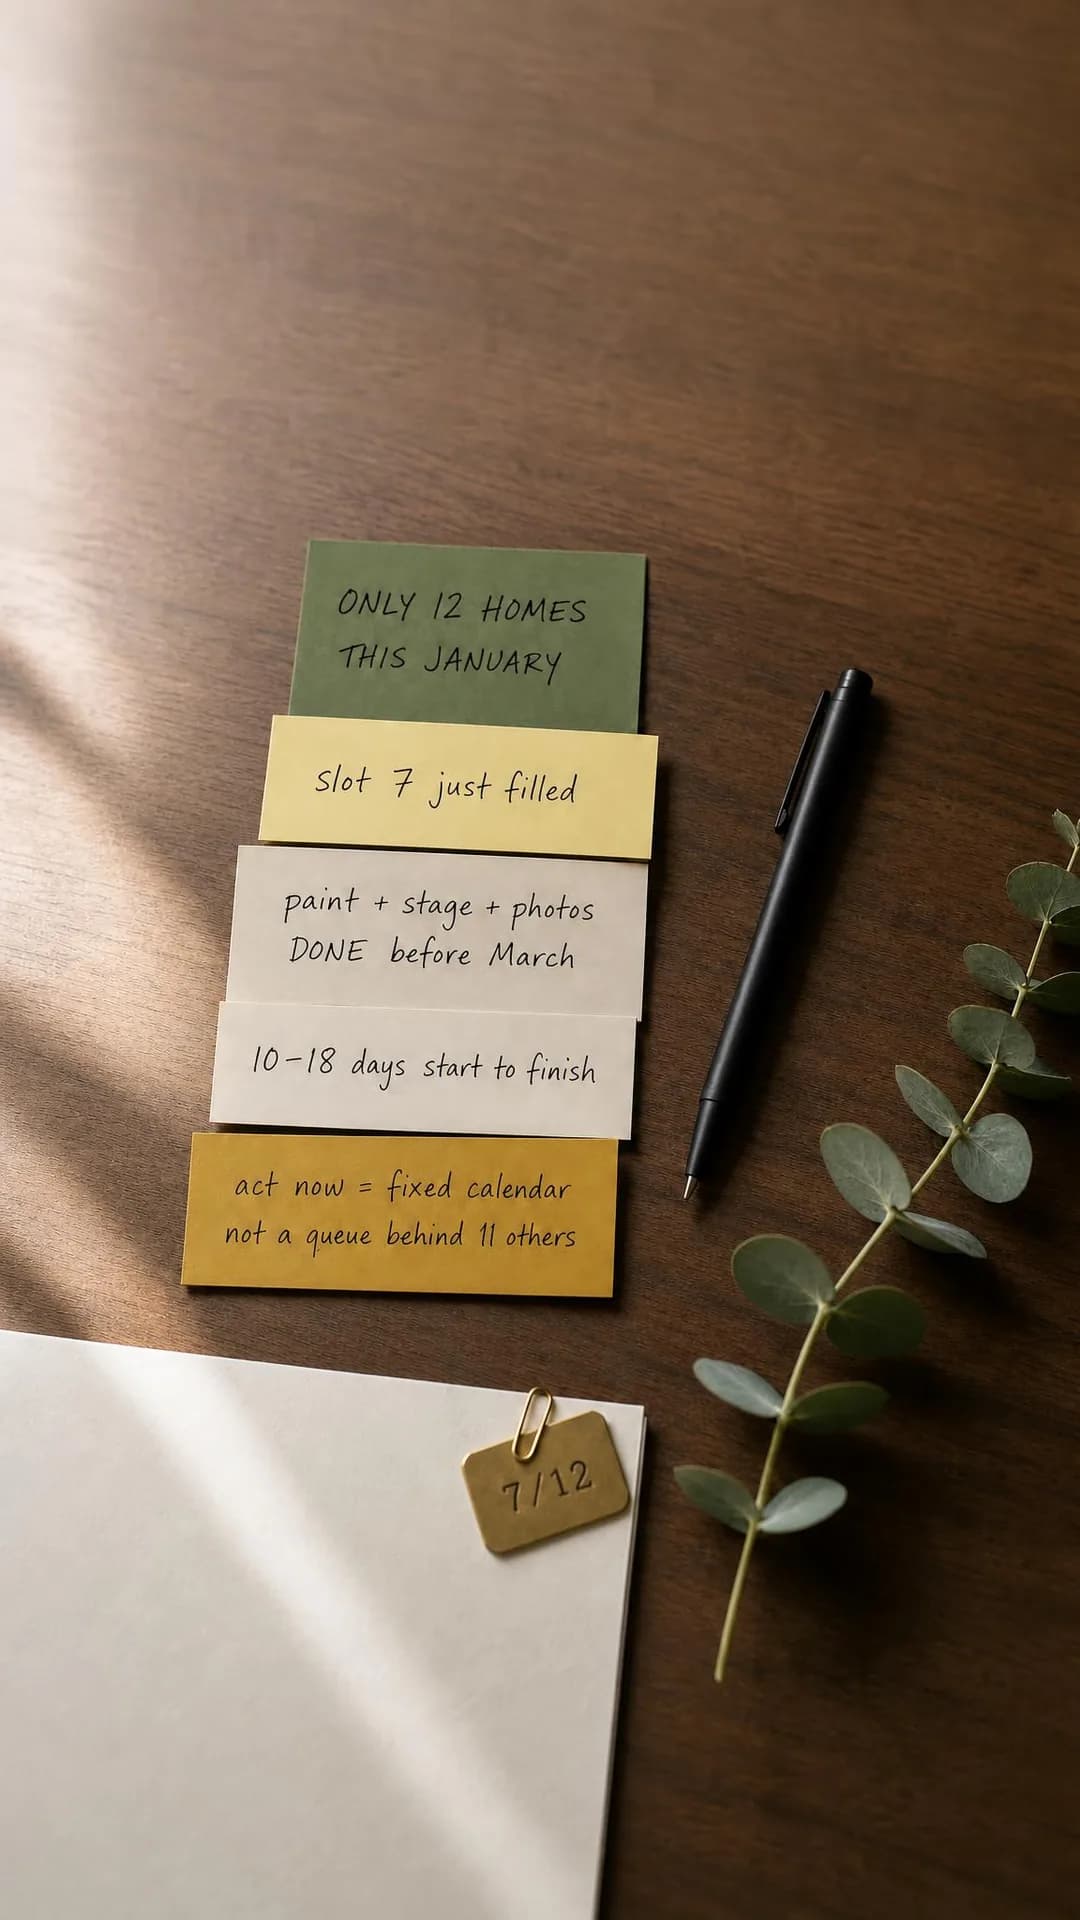 ONLY 12 HOMES
THIS JANUARY
slot 7 just filled
paint + stage + photos
DONE before March
10–18 days start to finish
act now = fixed calendar
not a queue behind 11 others
7/12